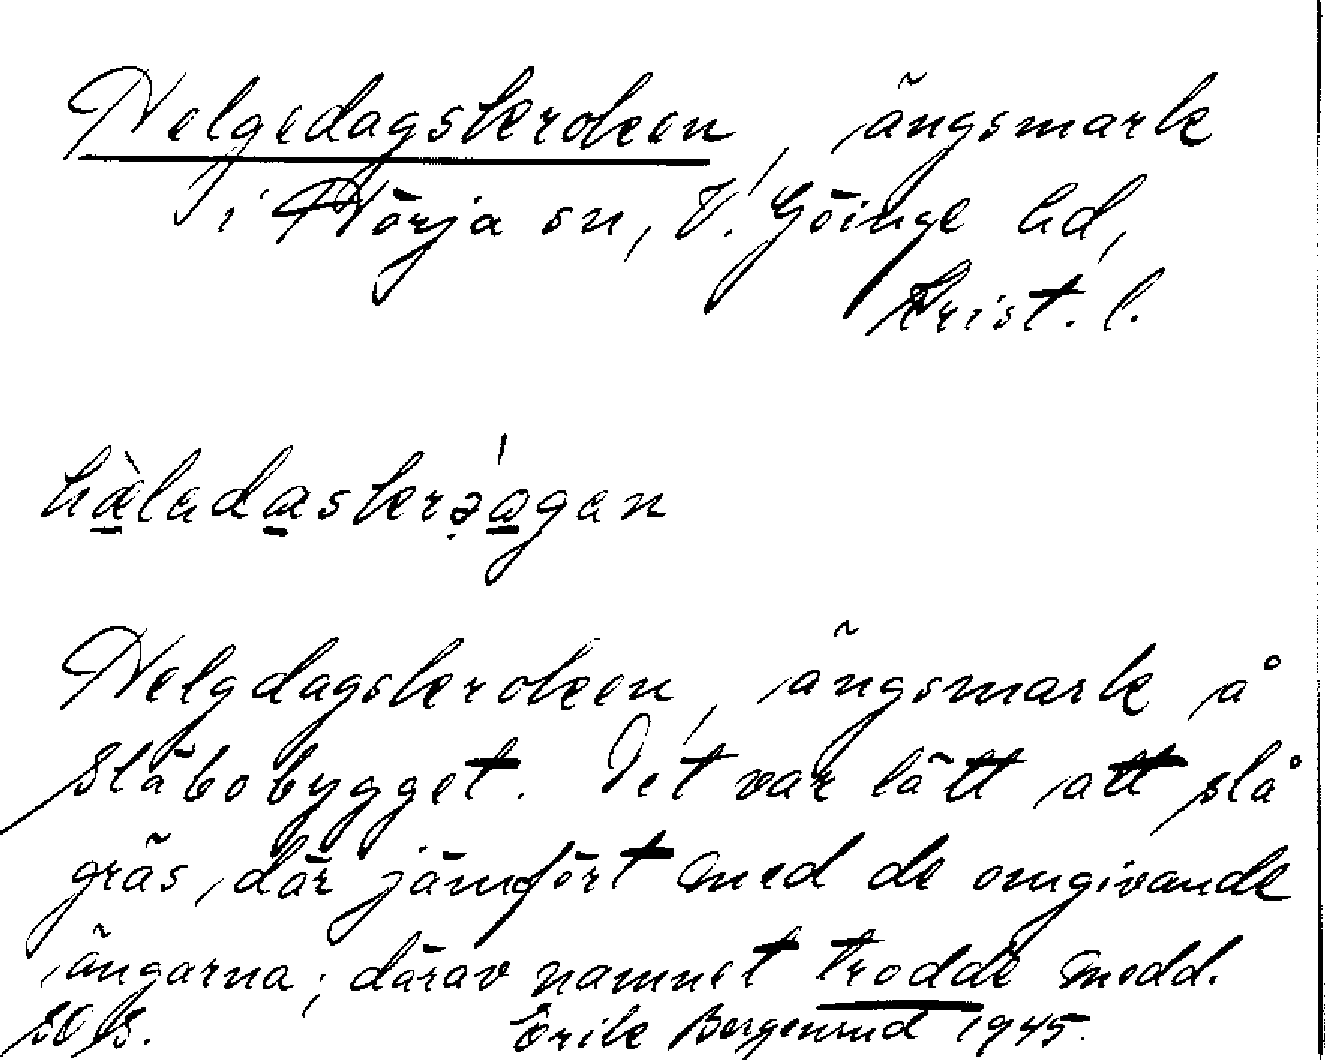 Helgedagskroken, ängsmark
i Hörja sn, V. Göinge hd,
Krist. l.
Helgdagskroken, ängsmark å
Släbobygget. Det var lätt att slå
gräs där jämfört med de omgivande
ängarna; därav namnet trodde medd.
Erik Bergenrud 1945.